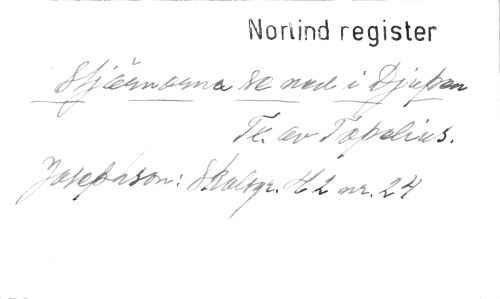 Norlind register
Stjärnorna se ned i Djupen
Tx. av Topelius.
Josephson: Skolsgr. H 2 nr. 24